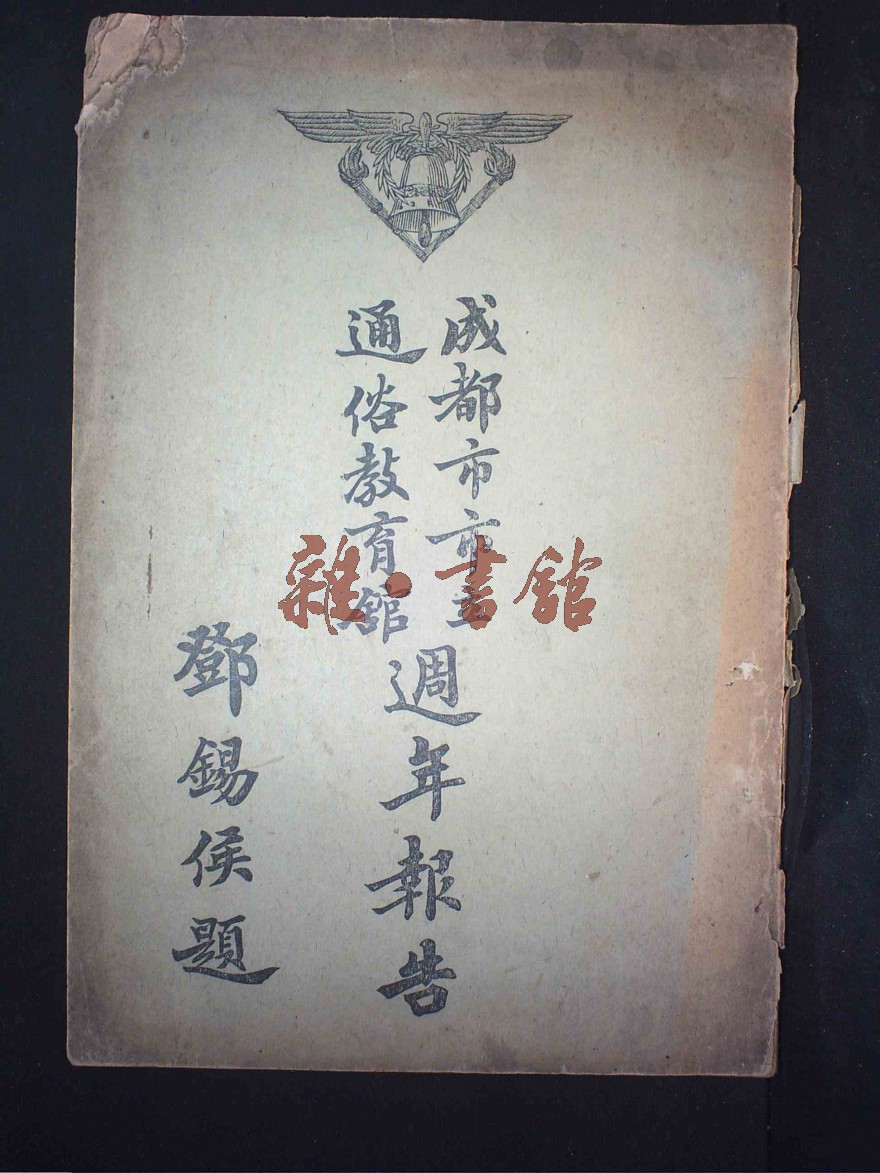 成都市市立
通俗教育館
週年報告
鄧錫侯題
雜·書館